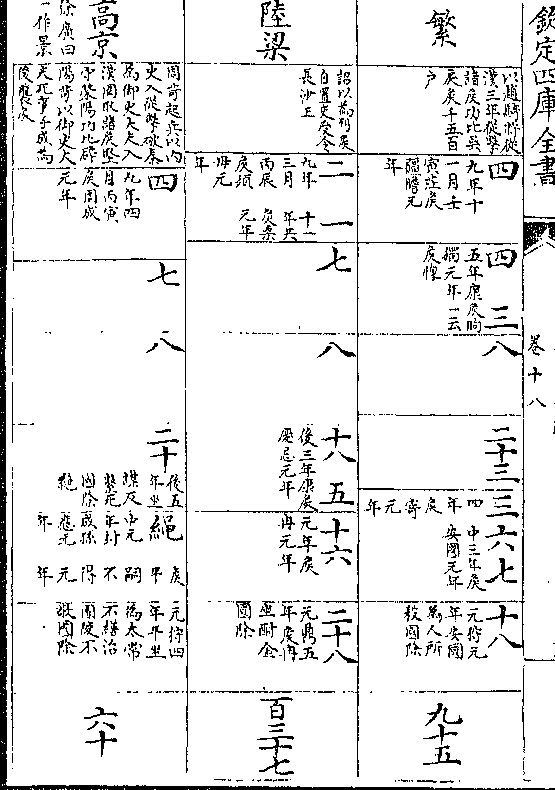 欽定四庫全書
卷十八
繁
以趙騎將從
漢三年從擊
諸侯功比吳
房侯千五百
戶
四
九年十
一月壬
寅莊侯
彊瞻元
年
四
五年康侯昫
獨元年一云
侯惸
三
八
二十三
三
四
年
侯
寄
元
年
六
七
中三年侯
安國元年
十八
元狩元
年安國
為人所
殺國除
九十五
陸梁
詔以為列侯
自置吏受令
長沙王
二
九年
三月
丙辰
侯須
毋元
年
一
十二
年共
侯桑
元年
七
八
十八
後三年康侯
慶忌元年
五
十六
元年侯
冉元年
二十八
元鼎五
年侯冉
坐酎金
國除
百三十七
高京
徐廣曰
一作景
周苛起兵以內
史入從擊破秦
為御史大夫入
漢圍取諸侯堅
守滎陽功比辟
陽苛以御史大
夫死事子成為
後襲侯
四
九年四
月丙寅
侯周成
元年
七
八
二十
後五
年坐
謀反
繫死
國除
絶
繩
中元
年封
成孫
應元
年
侯
平
嗣
不
得
元
年
元狩四
年平坐
為太常
不繕治
園陵不
敬國除
六十